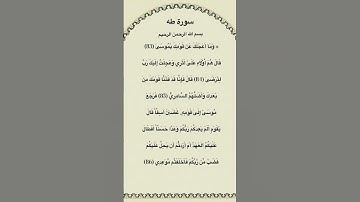 سورة طه
بسم الله الرحمن الرحيم
* وَمَا أَعْجَلَكَ عَن قَوْمِكَ يَٰمُوسَىٰ (83)
قَالَ هُمْ أُوْلَآءِ عَلَىٰٓ أَثَرِي وَعَجِلْتُ إِلَيْكَ رَبِّ
لِتَرْضَىٰ (84) قَالَ فَإِنَّا قَدْ فَتَنَّا قَوْمَكَ مِنۢ
بَعْدِكَ وَأَضَلَّهُمُ ٱلسَّامِرِيُّ (85) فَرَجَعَ
مُوسَىٰٓ إِلَىٰ قَوْمِهِۦ غَضْبَٰنَ أَسِفًا قَالَ
يَٰقَوْمِ أَلَمْ يَعِدْكُمْ رَبُّكُمْ وَعْدًا حَسَنًا أَفَطَالَ
عَلَيْكُمُ ٱلْعَهْدُ أَمْ أَرَدتُّمْ أَن يَحِلَّ عَلَيْكُمْ
غَضَبٌ مِّن رَّبِّكُمْ فَأَخْلَفْتُم مَّوْعِدِي (86)